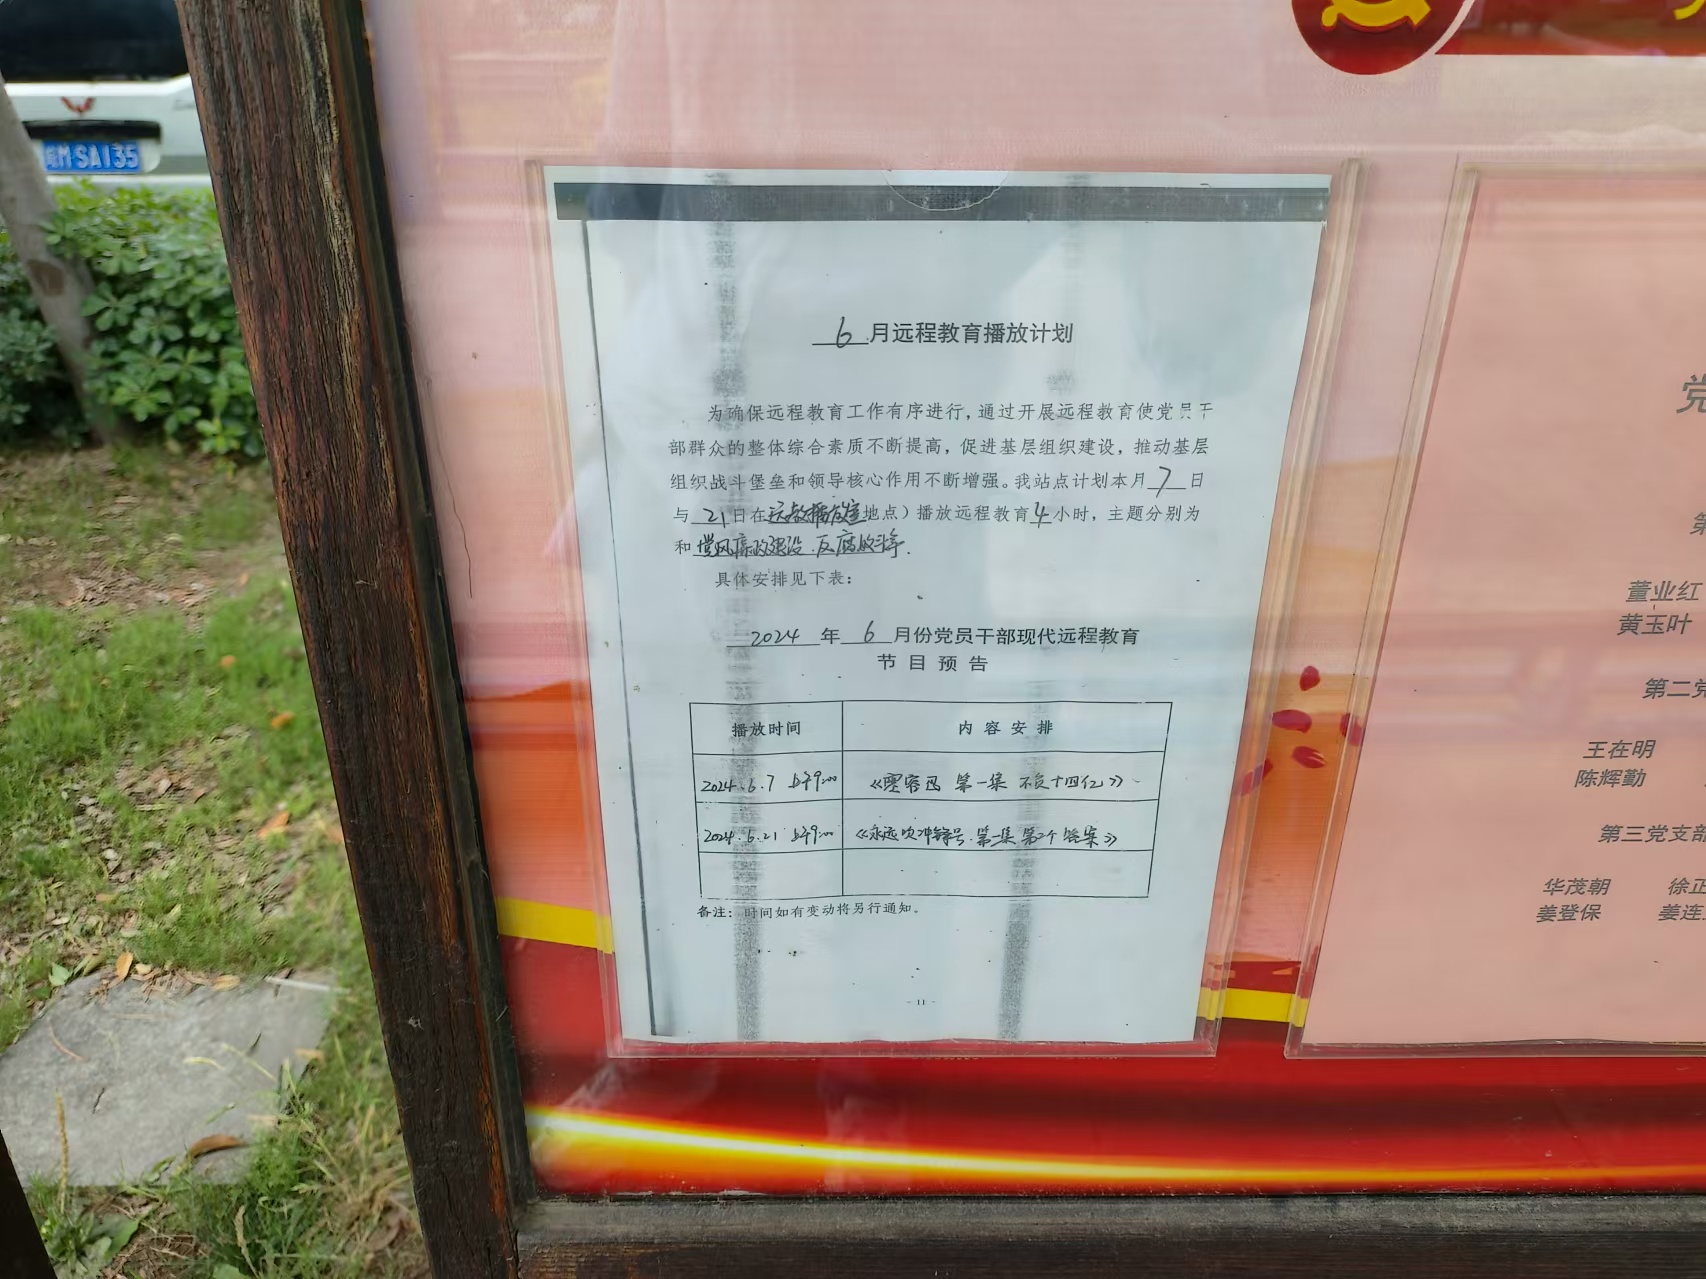 SA135
6月远程教育播放计划
为确保远程教育工作有序进行，通过开展远程教育使党员干
部群众的整体综合素质不断提高，促进基层组织建设，推动基层
组织战斗堡垒和领导核心作用不断增强。我站点计划本月7日
与21日在远教播放室地点）播放远程教育4小时，主题分别为
和党风廉政建设、反腐败斗争.
具体安排见下表：
2024年6月份党员干部现代远程教育
节目预告
播放时间 内容安排
2024.6.7 上午9:00 《零容忍 第一集 不负十四亿》
2024.6.21 上午9:00 《永远吹冲锋号 第一集 第二个答案》
备注：时间如有变动将另行通知。
- 11 -
党
第
董业红
黄玉叶
第二党
王在明
陈辉勤
第三党支部
华茂朝 徐正
姜登保 姜连